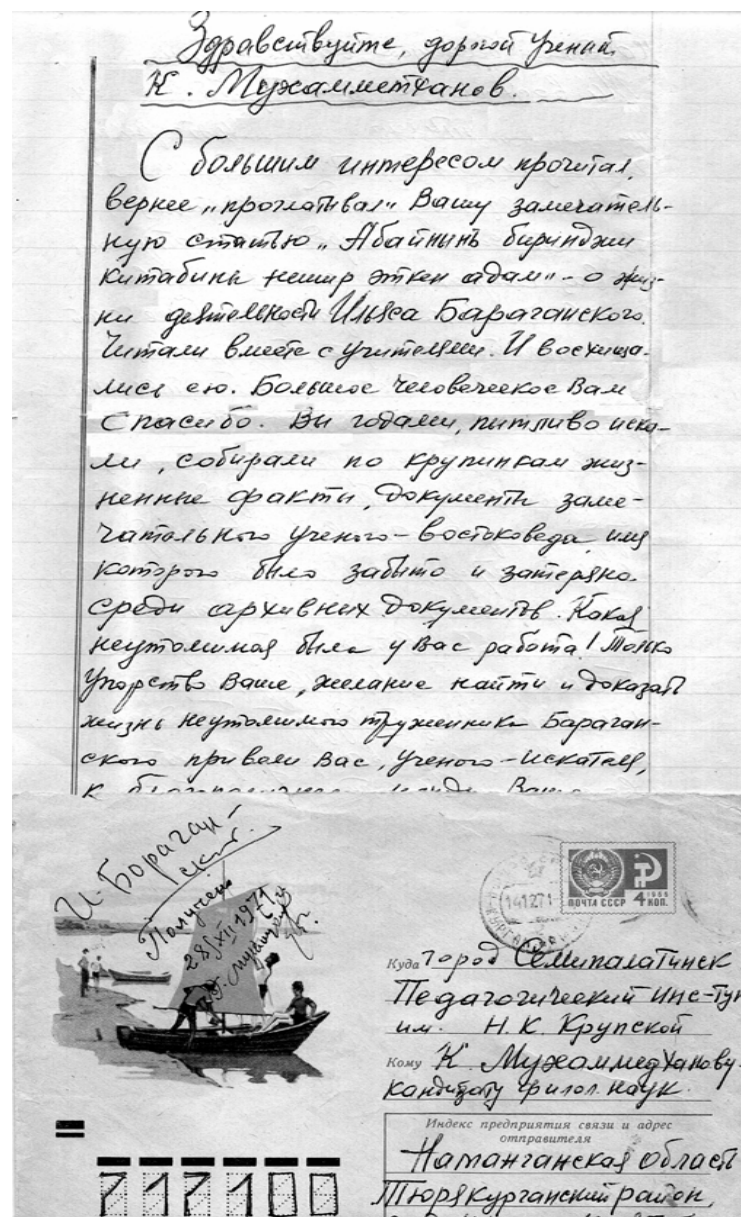 Здравствуйте, дорогой ученый
К. Мухамметханов.
С большим интересом прочитал,
вернее „проглатывал" Вашу замечатель-
ную статью „Абайнинъ биринджи
китабинъ нешир эткен адам" - о жиз-
ни деятельности Ильяса Бараганского.
Читали вместе с учителями. И восхища-
лись ею. Большое человеческое Вам
Спасибо. Вы годами, пытливо иска-
ли, собирали по крупинкам жиз-
ненные факты, документы заме-
чательного ученого-востоковеда имя
которого было забыто и затеряно
среди архивных документов. Какая
неутомимая была у Вас работа! Только
Упорство Ваше, желание найти и доказать
жизнь неутомимого труженника Бараган-
ского привели Вас, ученого-искателя,
И. Бораган-
ский.
Получено
28/XII 1971
14.12.71
ПОЧТА СССР 4 КОП.
1966
Куда город Семипалатинск
Педагогический инс-тут
им. Н.К. Крупской
Кому К Мухаммедханову-
кандидату филол. наук.
Индекс предприятия связи и адрес
отправителя
Наманганская область
Тюрякурганский район,